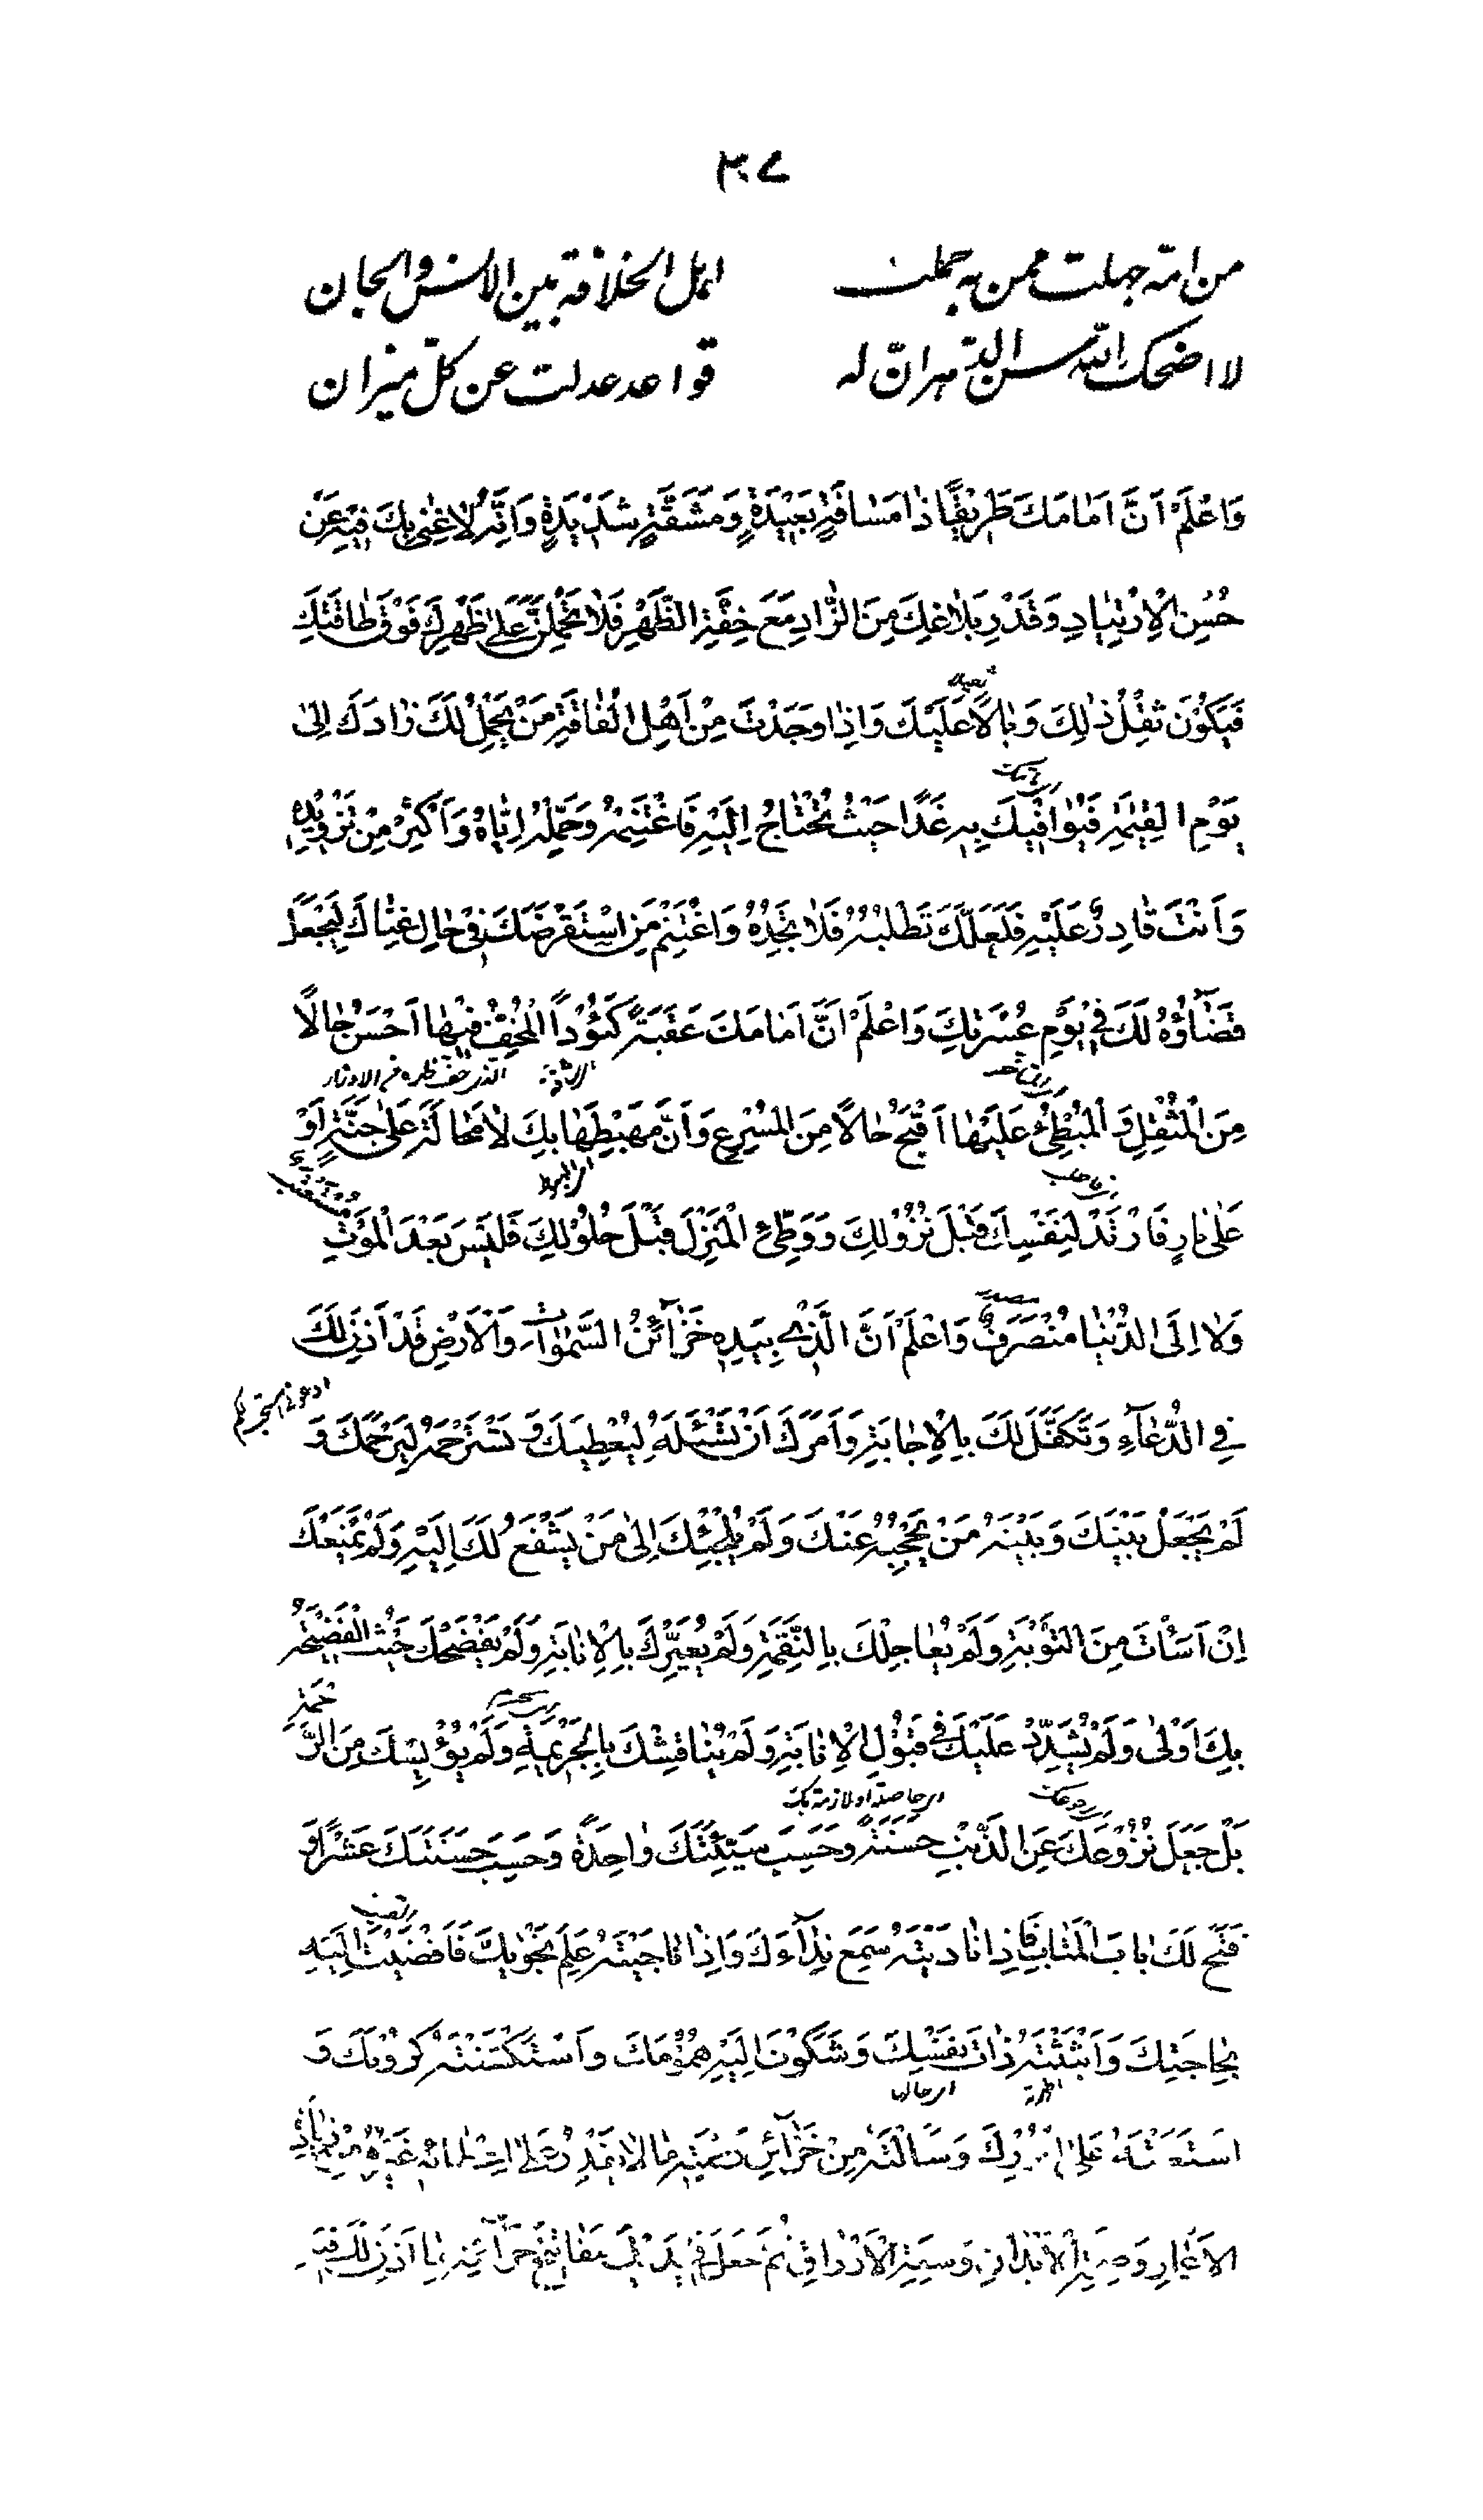 ٣٠٧
من امة جهلت ممن به حملت
اهل الخلافة بين الانس والجان
لا اضحك الله سن الدهر ان له
قواعد عدلت عن كل ميزان
وَاعْلَمْ اَنَّ اَمَامَكَ طَرِيْقًا ذَا مَسَافَةٍ بَعِيْدَةٍ وَمَشَقَّةٍ شَدِيْدَةٍ وَاَنَّهُ لَا غِنٰى بِكَ فِيْهِ عَنْ
حُسْنِ الْاِرْتِيَادِ وَقَدْرِ بَلَاغِكَ مِنَ الزَّادِ مَعَ خِفَّةِ الظَّهْرِ فَلَا تَحْمِلَنَّ عَلٰى ظَهْرِكَ فَوْقَ طَاقَتِكَ
فَيَكُوْنَ ثِقْلُ ذٰلِكَ وَبَالًا عَلَيْكَ وَاِذَا وَجَدْتَ مِنْ اَهْلِ الْفَاقَةِ مَنْ يَحْمِلُ لَكَ زَادَكَ اِلٰى
يَوْمِ الْقِيٰمَةِ فَيُوَافِيْكَ بِهِ غَدًا حَيْثُ تَحْتَاجُ اِلَيْهِ فَاغْتَنِمْهُ وَحَمِّلْهُ اِيَّاهُ وَاَكْثِرْ مِنْ تَزْوِيْدِهِ
وَاَنْتَ قَادِرٌ عَلَيْهِ فَلَعَلَّكَ تَطْلُبُهُ فَلَا تَجِدُهُ وَاغْتَنِمْ مَنِ اسْتَقْرَضَكَ فِيْ حَالِ غِنَاكَ لِيَجْعَلَ
قَضَاؤَهُ لَكَ فِيْ يَوْمِ عُسْرَتِكَ وَاعْلَمْ اَنَّ اَمَامَكَ عَقَبَةً كَئُوْدًا الْمُخِفُّ فِيْهَا اَحْسَنُ حَالًا
مِنَ الْمُثْقِلِ وَالْمُبْطِئُ عَلَيْهَا اَقْبَحُ حَالًا مِنَ الْمُسْرِعِ وَاَنَّ مَهْبِطَهَا بِكَ لَا مَحَالَةَ عَلٰى جَنَّةٍ اَوْ
عَلٰى نَارٍ فَارْتَدْ لِنَفْسِكَ قَبْلَ نُزُوْلِكَ وَوَطِّئِ الْمَنْزِلَ قَبْلَ حُلُوْلِكَ فَلَيْسَ بَعْدَ الْمَوْتِ مُسْتَعْتَبٌ
وَلَا اِلَى الدُّنْيَا مُنْصَرَفٌ وَاعْلَمْ اَنَّ الَّذِيْ بِيَدِهِ خَزَائِنُ السَّمٰوَاتِ وَالْاَرْضِ قَدْ اَذِنَ لَكَ
فِي الدُّعَاءِ وَتَكَفَّلَ لَكَ بِالْاِجَابَةِ وَاَمَرَكَ اَنْ تَسْئَلَهُ لِيُعْطِيَكَ وَتَسْتَرْحِمَهُ لِيَرْحَمَكَ وَ
لَمْ يَجْعَلْ بَيْنَكَ وَبَيْنَهُ مَنْ يَحْجُبُهُ عَنْكَ وَلَمْ يُلْجِئْكَ اِلٰى مَنْ يَشْفَعُ لَكَ اِلَيْهِ وَلَمْ يَمْنَعْكَ
اِنْ اَسَأْتَ مِنَ التَّوْبَةِ وَلَمْ يُعَاجِلْكَ بِالنِّقْمَةِ وَلَمْ يُعَيِّرْكَ بِالْاِنَابَةِ وَلَمْ يَفْضَحْكَ حَيْثُ الْفَضِيْحَةُ
بِكَ اَوْلٰى وَلَمْ يُشَدِّدْ عَلَيْكَ فِيْ قَبُوْلِ الْاِنَابَةِ وَلَمْ يُنَاقِشْكَ بِالْجَرِيْمَةِ وَلَمْ يُؤْيِسْكَ مِنَ الرَّحْمَةِ
بَلْ جَعَلَ نُزُوْعَكَ عَنِ الذَّنْبِ حَسَنَةً وَحَسَبَ سَيِّئَتَكَ وَاحِدَةً وَحَسَبَ حَسَنَتَكَ عَشْرًا وَ
فَتَحَ لَكَ بَابَ الْمَتَابِ فَاِذَا نَادَيْتَهُ سَمِعَ نِدَاءَكَ وَاِذَا نَاجَيْتَهُ عَلِمَ نَجْوَاكَ فَاَفْضَيْتَ اِلَيْهِ
بِحَاجَتِكَ وَاَبْثَثْتَهُ ذَاتَ نَفْسِكَ وَشَكَوْتَ اِلَيْهِ هُمُوْمَكَ وَاسْتَكْشَفْتَهُ كُرُوْبَكَ وَ
اسْتَعَنْتَهُ عَلٰى اُمُوْرِكَ وَسَاَلْتَهُ مِنْ خَزَائِنِ رَحْمَتِهِ مَا لَا يَقْدِرُ عَلٰى اِعْطَائِهِ غَيْرُهُ مِنْ زِيَادَةِ
الْاَعْمَارِ وَصِحَّةِ الْاَبْدَانِ وَسَعَةِ الْاَرْزَاقِ ثُمَّ جَعَلَ فِيْ يَدَيْكَ مَفَاتِيْحَ خَزَائِنِهِ بِمَا اَذِنَ لَكَ فِيْهِ